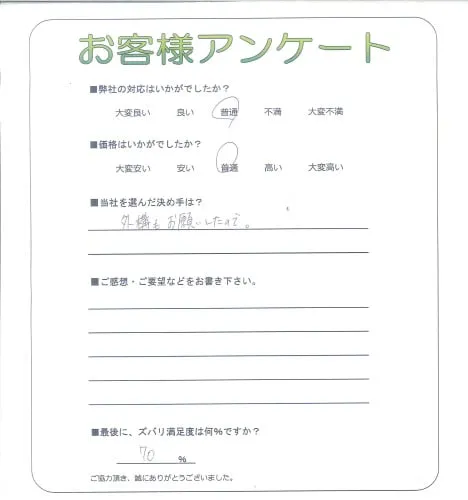 お客様アンケート
■弊社の対応はいかがでしたか？
大変良い 良い 普通 不満 大変不満
■価格はいかがでしたか？
大変安い 安い 普通 高い 大変高い
■当社を選んだ決め手は？
外構もお願いしたので。
■ご感想・ご要望などをお書き下さい。
■最後に、ズバリ満足度は何％ですか？
70 ％
ご協力頂き、誠にありがとうございました。